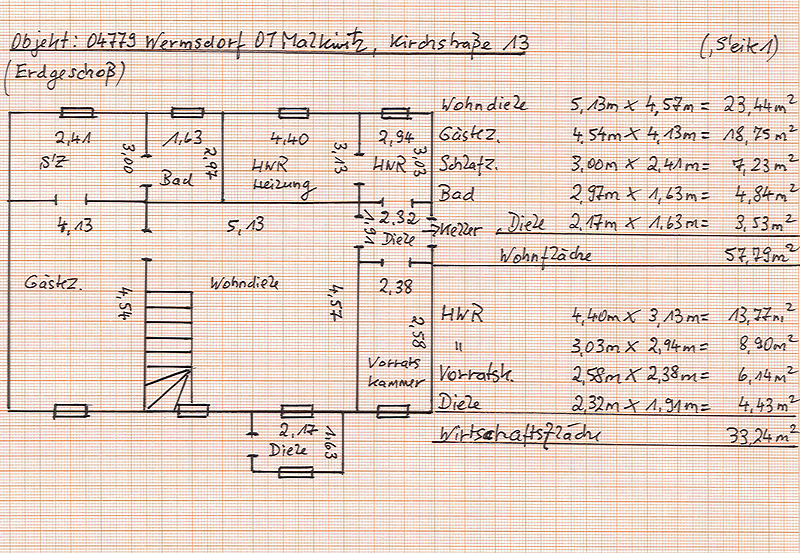 Objekt: 04779 Wermsdorf OT Malkwitz, Kirchstraße 13 (Seite 1)
(Erdgeschoß)
Wohndiele 5,13m x 4,57m = 23,44m²
Gästez. 4,54m x 4,13m = 18,75m²
Schlafz. 3,00m x 2,41m = 7,23m²
Bad 2,97m x 1,63m = 4,84m²
Diele 2,17m x 1,63m = 3,53m²
Wohnfläche 57,79m²
HWR 4,40m x 3,13m = 13,77m²
" 3,03m x 2,94m = 8,90m²
Vorratsk. 2,58m x 2,38m = 6,14m²
Diele 2,32m x 1,91m = 4,43m²
Wirtschaftsfläche 33,24m²
2,41
3,00
SZ
1,63
2,97
Bad
4,40
3,13
HWR
Heizung
2,94
3,03
HWR
4,13
4,54
Gästez.
5,13
4,57
Wohndiele
2,32
1,91
Diele
Keller
2,38
2,58
Vorrats
kammer
2,17
1,63
Diele